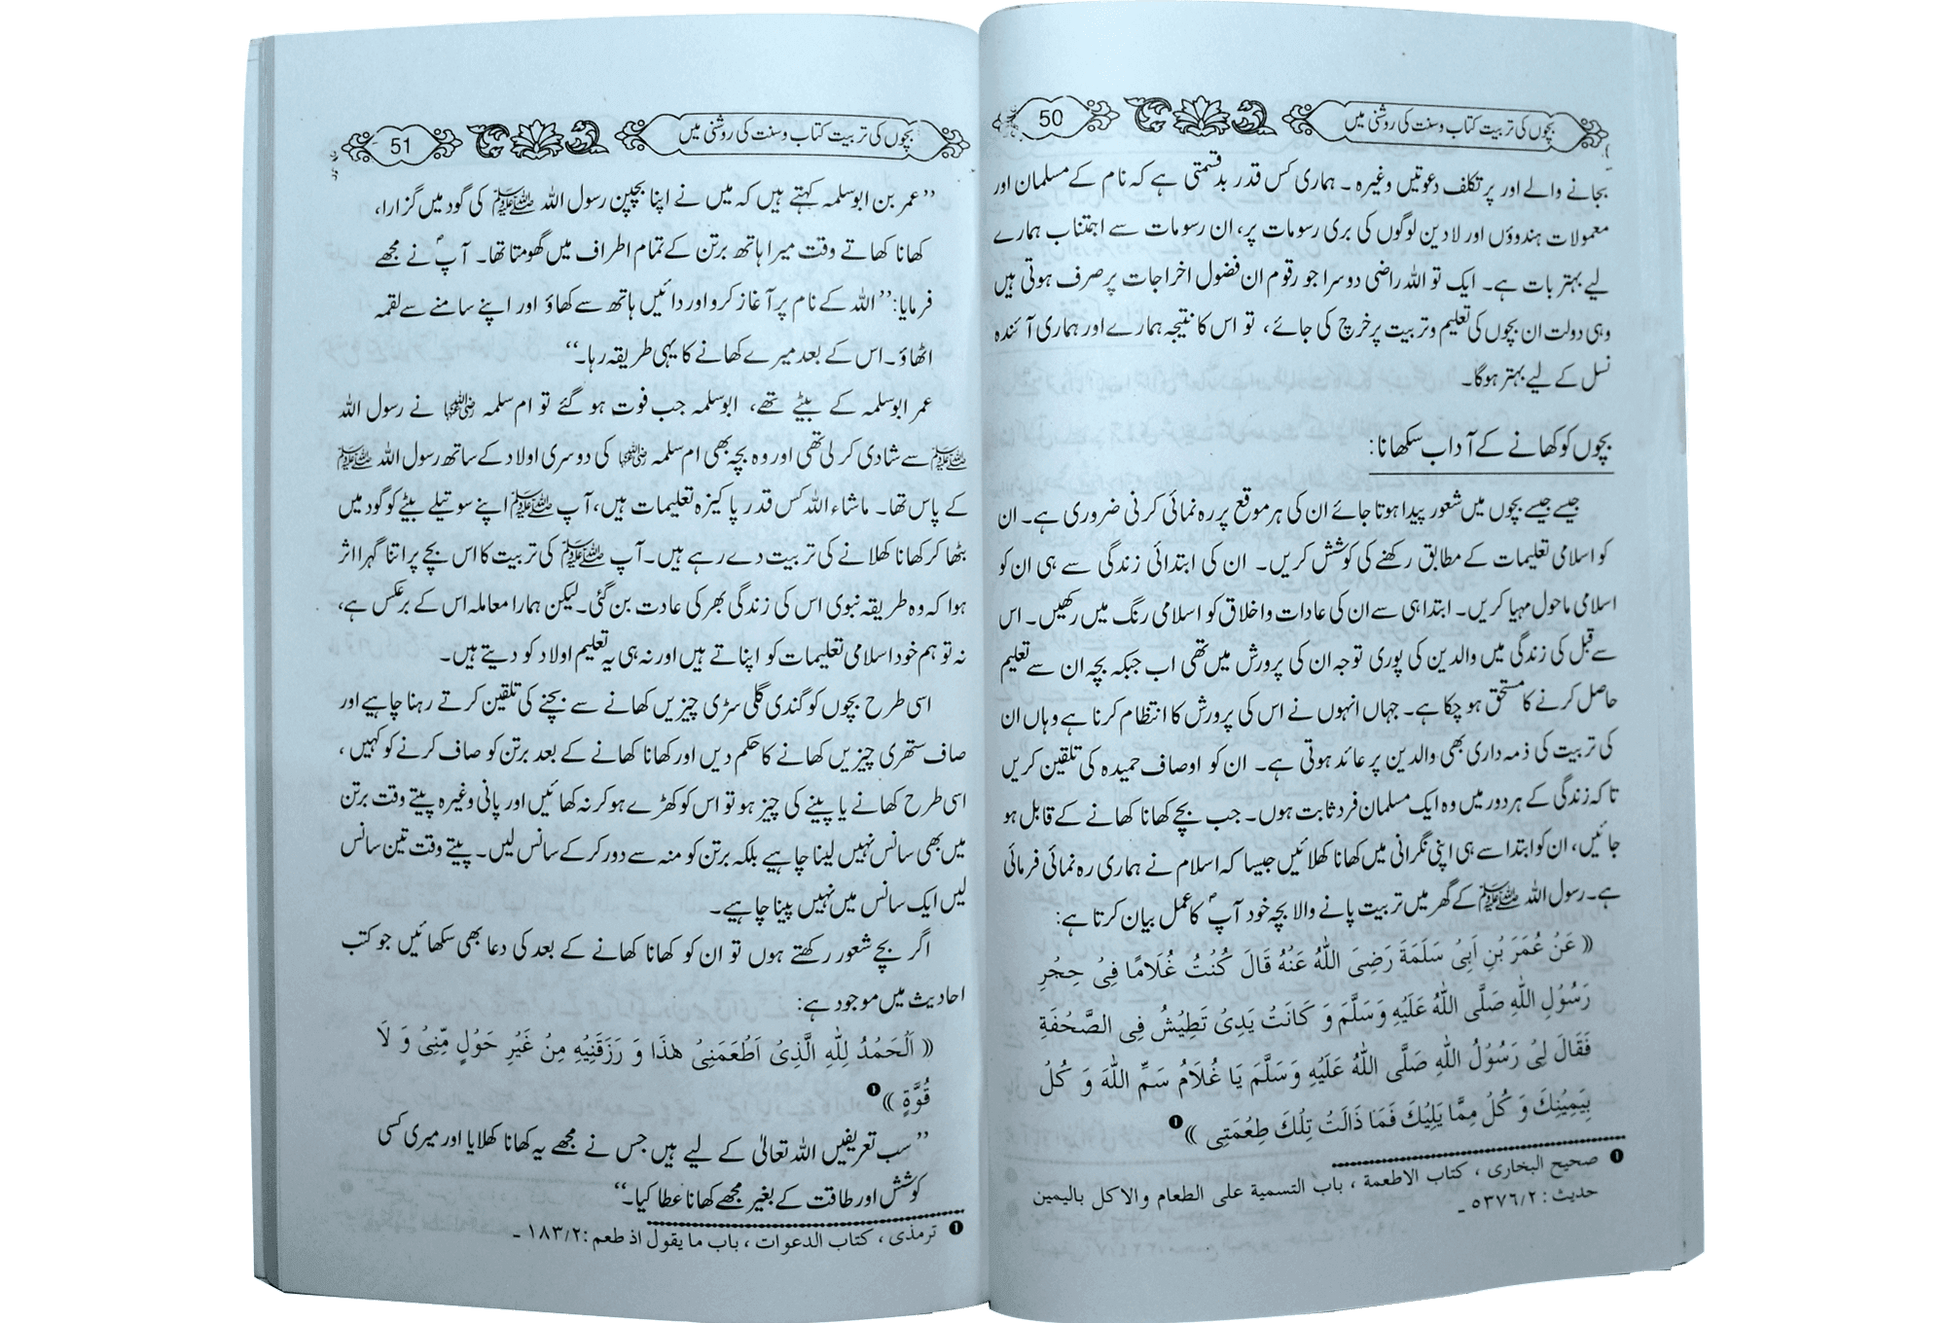 بچوں کی تربیت کتاب و سنت کی روشنی میں 50
بجانے والے اور پر تکلف دعوتیں وغیرہ ۔ ہماری کس قدر بدقسمتی ہے کہ نام کے مسلمان اور
معمولات ہندوؤں اور لادین لوگوں کی بری رسومات پر، ان رسومات سے اجتناب ہمارے
لیے بہتر بات ہے۔ ایک تو اللہ راضی دوسرا جو رقوم ان فضول اخراجات پر صرف ہوتی ہیں
وہی دولت ان بچوں کی تعلیم و تربیت پر خرچ کی جائے، تو اس کا نتیجہ ہمارے اور ہماری آئندہ
نسل کے لیے بہتر ہوگا۔
بچوں کو کھانے کے آداب سکھانا:
جیسے جیسے بچوں میں شعور پیدا ہوتا جائے ان کی ہر موقع پر رہ نمائی کرنی ضروری ہے۔ ان
کو اسلامی تعلیمات کے مطابق رکھنے کی کوشش کریں۔ ان کی ابتدائی زندگی سے ہی ان کو
اسلامی ماحول مہیا کریں۔ ابتدا ہی سے ان کی عادات و اخلاق کو اسلامی رنگ میں رکھیں۔ اس
سے قبل کی زندگی میں والدین کی پوری توجہ ان کی پرورش میں تھی اب جبکہ بچہ ان سے تعلیم
حاصل کرنے کا مستحق ہو چکا ہے۔ جہاں انہوں نے اس کی پرورش کا انتظام کرنا ہے وہاں ان
کی تربیت کی ذمہ داری بھی والدین پر عائد ہوتی ہے۔ ان کو اوصاف حمیدہ کی تلقین کریں
تا کہ زندگی کے ہر دور میں وہ ایک مسلمان فرد ثابت ہوں۔ جب بچے کھانا کھانے کے قابل ہو
جائیں، ان کو ابتدا سے ہی اپنی نگرانی میں کھانا کھلائیں جیسا کہ اسلام نے ہماری رہ نمائی فرمائی
ہے۔ رسول اللہ ﷺ کے گھر میں تربیت پانے والا بچہ خود آپؐ کا عمل بیان کرتا ہے:
(( عَنْ عُمَرَ بْنِ اَبِیْ سَلَمَةَ رَضِیَ اللّٰهُ عَنْهُ قَالَ كُنْتُ غُلَامًا فِیْ حِجْرِ
رَسُوْلِ اللّٰهِ صَلَّی اللّٰهُ عَلَیْهِ وَسَلَّمَ وَ كَانَتْ یَدِیْ تَطِیْشُ فِی الصَّحْفَةِ
فَقَالَ لِیْ رَسُوْلُ اللّٰهِ صَلَّی اللّٰهُ عَلَیْهِ وَسَلَّمَ یَا غُلَامُ سَمِّ اللّٰهَ وَ كُلْ
بِیَمِیْنِكَ وَ كُلْ مِمَّا یَلِیْكَ فَمَا ذَالَتْ تِلْكَ طِعْمَتِی ))❶
❶ صحیح البخاری ، کتاب الاطعمة ، باب التسمیة علی الطعام والاکل بالیمین
حدیث : ٥٣٧٦/٢ ۔
بچوں کی تربیت کتاب و سنت کی روشنی میں 51
’’عمر بن ابو سلمہ کہتے ہیں کہ میں نے اپنا بچپن رسول اللہ ﷺ کی گود میں گزارا،
کھانا کھاتے وقت میرا ہاتھ برتن کے تمام اطراف میں گھومتا تھا۔ آپؐ نے مجھے
فرمایا: ’’اللہ کے نام پر آغاز کرو اور دائیں ہاتھ سے کھاؤ اور اپنے سامنے سے لقمہ
اٹھاؤ۔ اس کے بعد میرے کھانے کا یہی طریقہ رہا۔‘‘
عمر ابو سلمہ کے بیٹے تھے، ابو سلمہ جب فوت ہو گئے تو ام سلمہ رضی اللہ عنہا نے رسول اللہ
ﷺ سے شادی کر لی تھی اور وہ بچہ بھی ام سلمہ رضی اللہ عنہا کی دوسری اولاد کے ساتھ رسول اللہ ﷺ
کے پاس تھا۔ ماشاء اللہ کس قدر پاکیزہ تعلیمات ہیں، آپ ﷺ اپنے سوتیلے بیٹے کو گود میں
بٹھا کر کھانا کھلانے کی تربیت دے رہے ہیں۔ آپ ﷺ کی تربیت کا اس بچے پر اتنا گہرا اثر
ہوا کہ وہ طریقہ نبوی اس کی زندگی بھر کی عادت بن گئی۔ لیکن ہمارا معاملہ اس کے برعکس ہے،
نہ تو ہم خود اسلامی تعلیمات کو اپناتے ہیں اور نہ ہی یہ تعلیم اولاد کو دیتے ہیں۔
اسی طرح بچوں کو گندی گلی سڑی چیزیں کھانے سے بچنے کی تلقین کرتے رہنا چاہیے اور
صاف ستھری چیزیں کھانے کا حکم دیں اور کھانا کھانے کے بعد برتن کو صاف کرنے کو کہیں ،
اسی طرح کھانے یا پینے کی چیز ہو تو اس کو کھڑے ہو کر نہ کھائیں اور پانی وغیرہ پیتے وقت برتن
میں بھی سانس نہیں لینا چاہیے بلکہ برتن کو منہ سے دور کر کے سانس لیں۔ پیتے وقت تین سانس
لیں ایک سانس میں نہیں پینا چاہیے۔
اگر بچے شعور رکھتے ہوں تو ان کو کھانا کھانے کے بعد کی دعا بھی سکھائیں جو کتب
احادیث میں موجود ہے:
(( اَلْحَمْدُ لِلّٰهِ الَّذِیْ اَطْعَمَنِیْ هٰذَا وَ رَزَقَنِیْهِ مِنْ غَیْرِ حَوْلٍ مِّنِّیْ وَ لَا
قُوَّةٍ ))❶
’’سب تعریفیں اللہ تعالیٰ کے لیے ہیں جس نے مجھے یہ کھانا کھلایا اور میری کسی
کوشش اور طاقت کے بغیر مجھے کھانا عطا کیا۔‘‘
❶ ترمذی ، کتاب الدعوات ، باب ما یقول اذ طعم : ١٨٣/٢ ۔